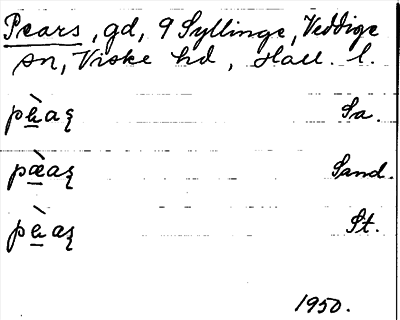 Pears, gd, 9 Syllinge, Veddige
sn, Viske hd, Hall. l.
pæ̀aʂ Sa.
pæ̀aʂ Sand.
pæ̀aʂ St.
1950.